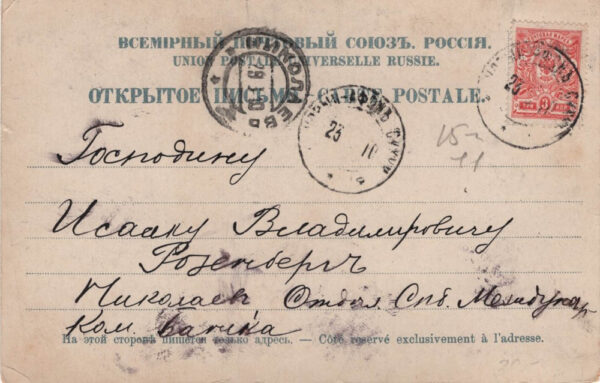 ВСЕМІРНЫЙ ПОЧТОВЫЙ СОЮЗЪ. РОССІЯ.
UNION POSTALE UNIVERSELLE RUSSIE.
ОТКРЫТОЕ ПИСЬМО. — CARTE POSTALE.
НИКОЛАЕВЪ
23
23
15-
11
Господину
Исааку Владимировичу
Розенбергъ
Николаев Отдѣл Спб. Междунар.
Ком. банка
На этой сторонѣ пишется только адресъ. — Côté réservé exclusivement à l'adresse.